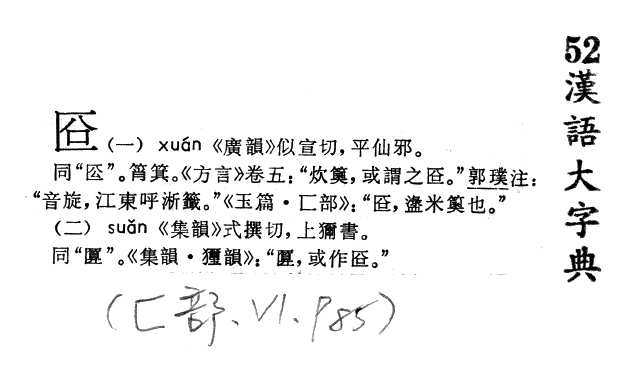 㔯 (一) xuán《廣韻》似宣切，平仙邪。
同“”。筲箕。《方言》卷五：“炊䉛，或謂之㔯。”郭璞注：
“音旋，江東呼淅籤。”《玉篇·匚部》：“㔯，盝米䉛也。”
(二) suǎn《集韻》式撰切，上獮書。
同“匴”。《集韻·獮韻》：“匴，或作㔯。”
(匚部、VI、P85)
52漢語大字典